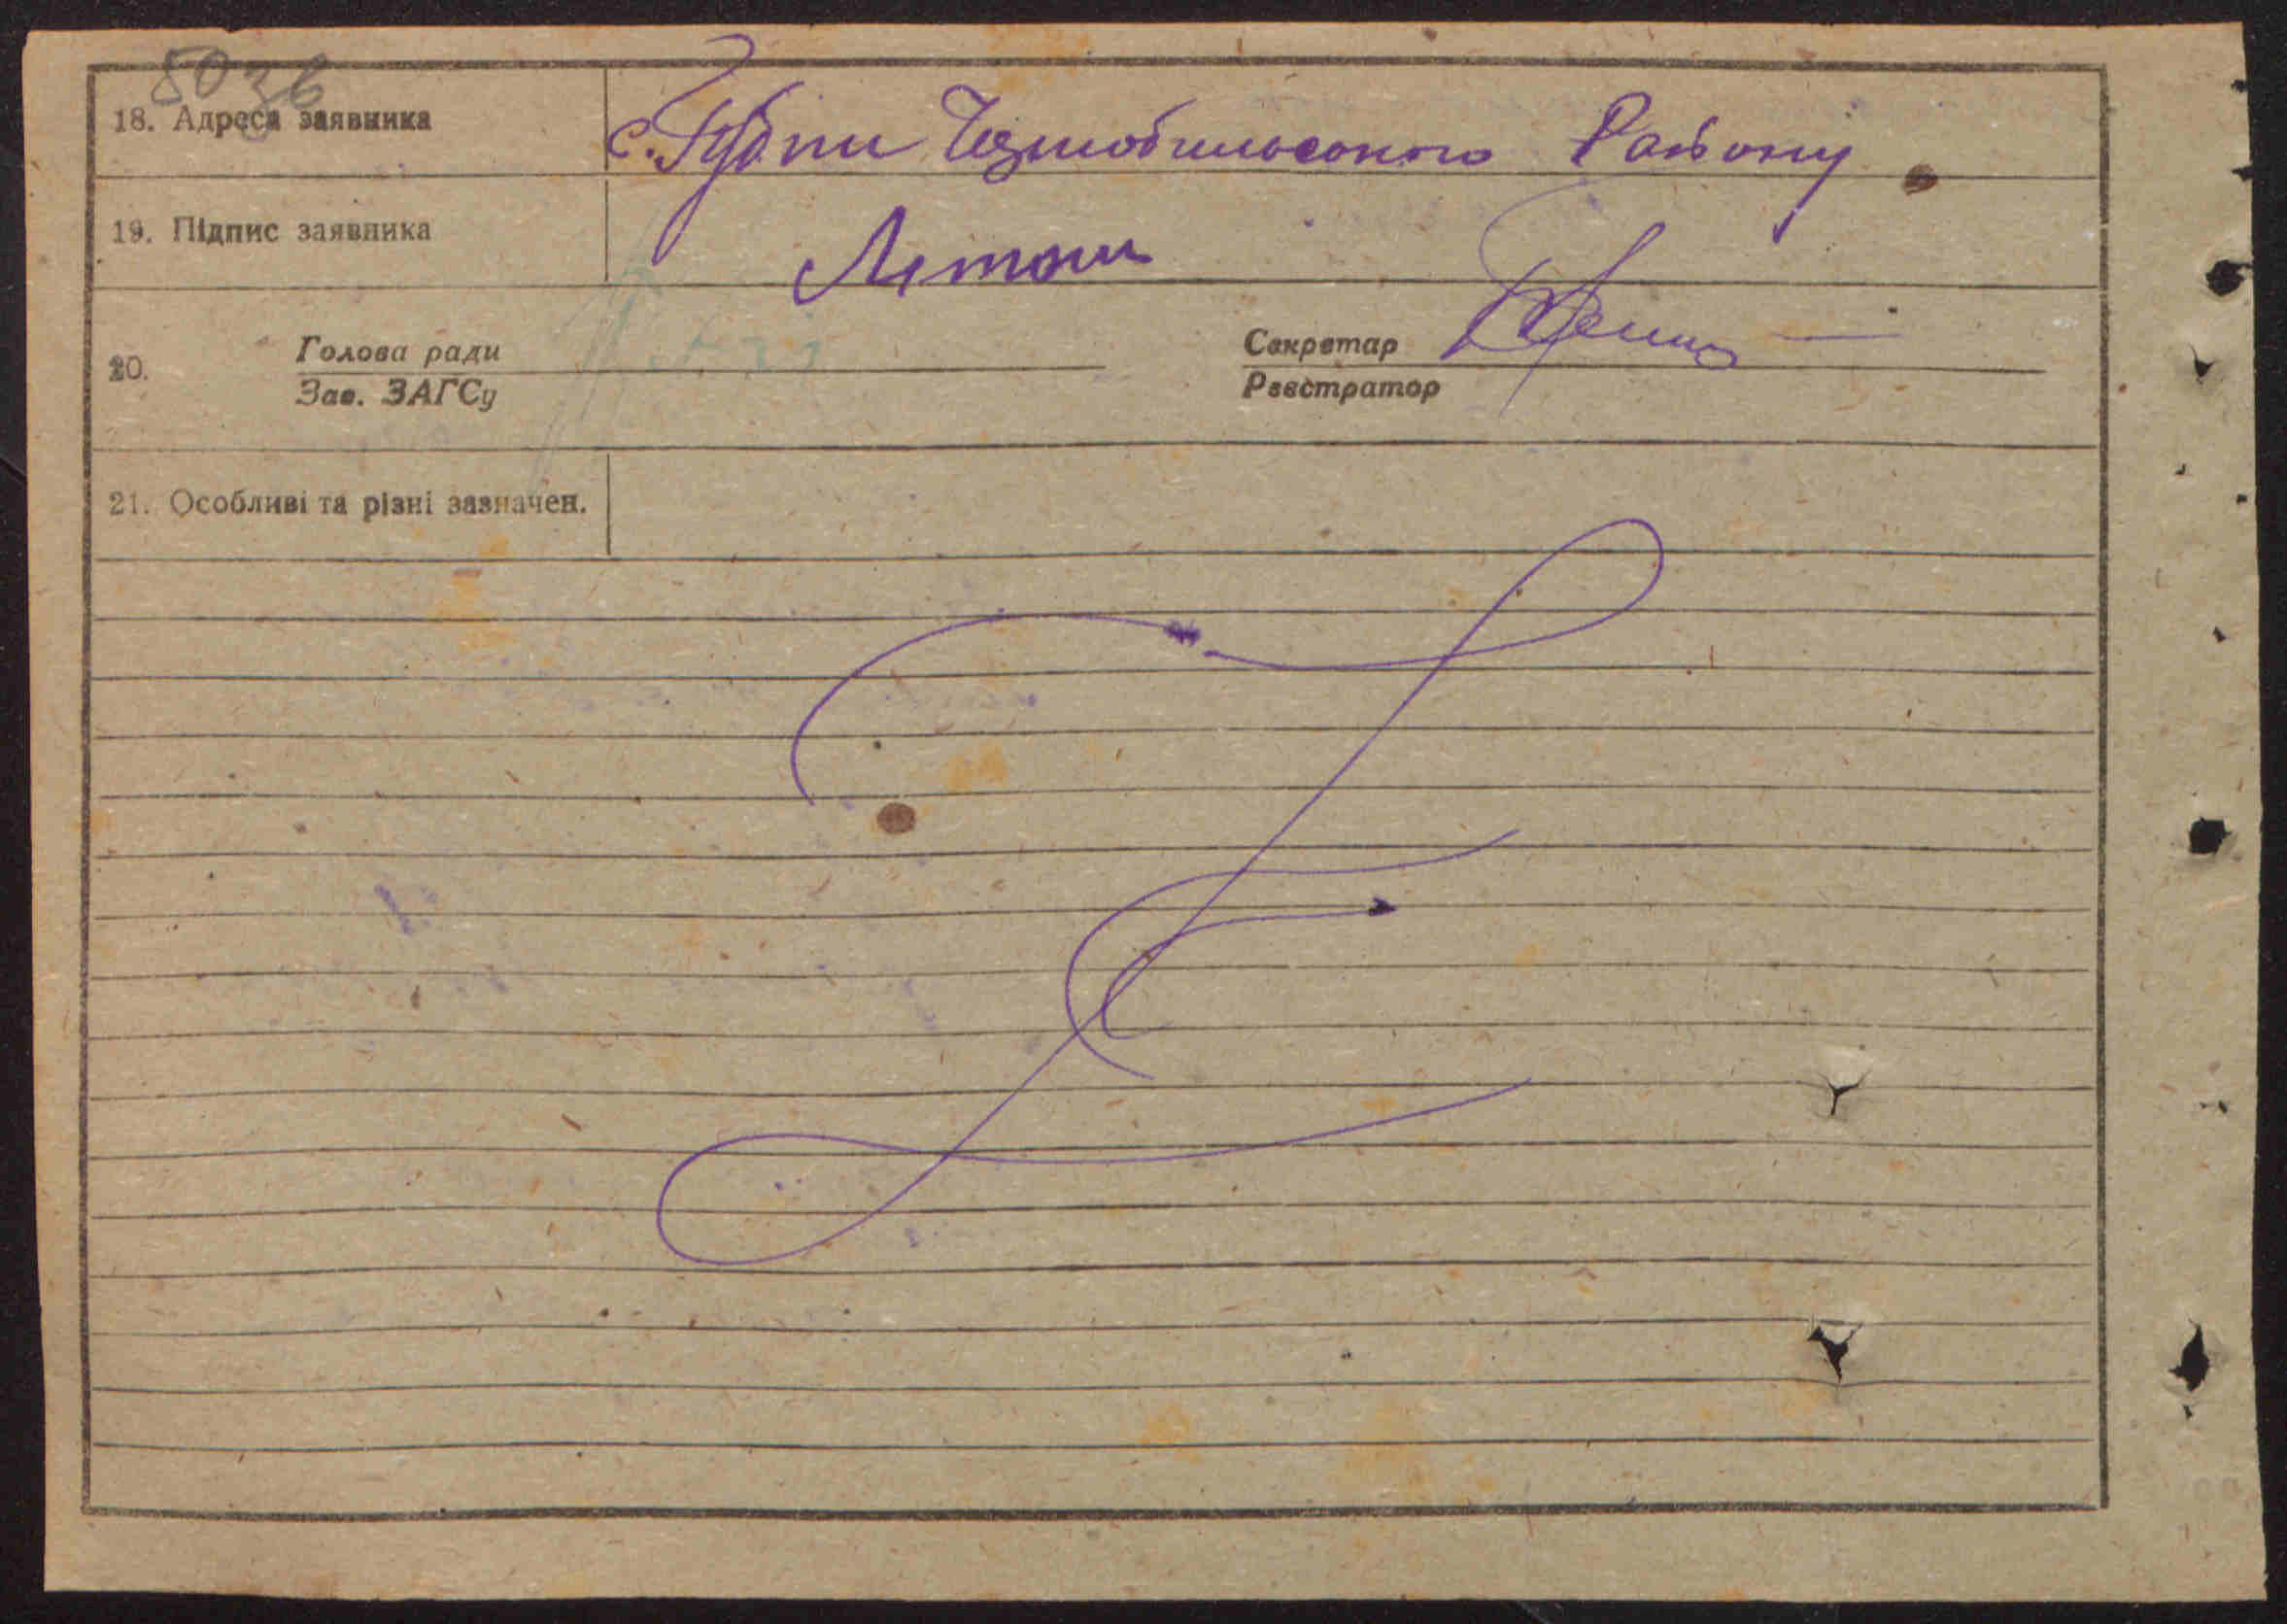 5036
18. Адреса заявника с. Зубпи Чорнобильського Району
19. Підпис заявника
20. Голова ради Секретар
Зав. ЗАГСу Реєстратор
21. Особливі та різні зазначен.